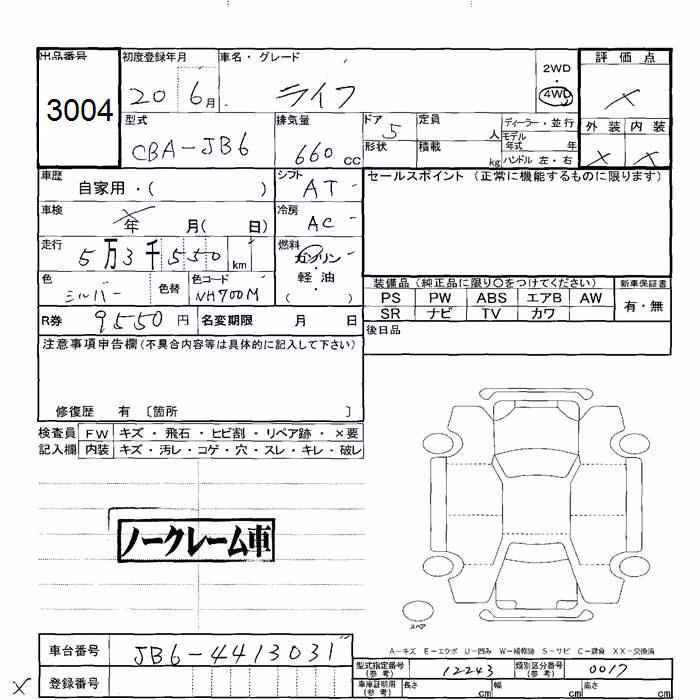 出品番号 初度登録年月 車名・グレード 2WD 評価点
3004 20 6月 ライフ 4WD ×
型式 排気量 ドア 5 定員 人 ディーラー・並行 外装 内装
CBA-JB6 660cc 形状 積載 kg モデル年式 年 × ×
ハンドル 左・右
車歴 自家用・( ) シフト AT セールスポイント (正常に機能するものに限ります)
車検 × 年 月( 日) 冷房 AC
走行 5万3千550 km 燃料 ガソリン・軽油 ( )
色 シルバー 色替 色コード NH700M
装備品 (純正品に限り○をつけてください) 新車保証書
PS PW ABS エアB AW 有・無
SR ナビ TV カワ
R券 9550円 名変期限 月 日 後日品
注意事項申告欄 (不具合内容等は具体的に記入して下さい)
修復歴 有 〔箇所 〕
検査員 FW キズ・飛石・ヒビ割・リペア跡・×要
記入欄 内装 キズ・汚レ・コゲ・穴・スレ・キレ・破レ
ノークレーム車
スペア
A－キズ E－エクボ U－凹み W－補修跡 S－サビ C－腐食 XX－交換済
車台番号 JB6-4413031
型式指定番号 (参考) 12243 類別区分番号 (参考) 0017
× 登録番号
車庫証明用 (参考) 長さ cm 幅 cm 高さ cm